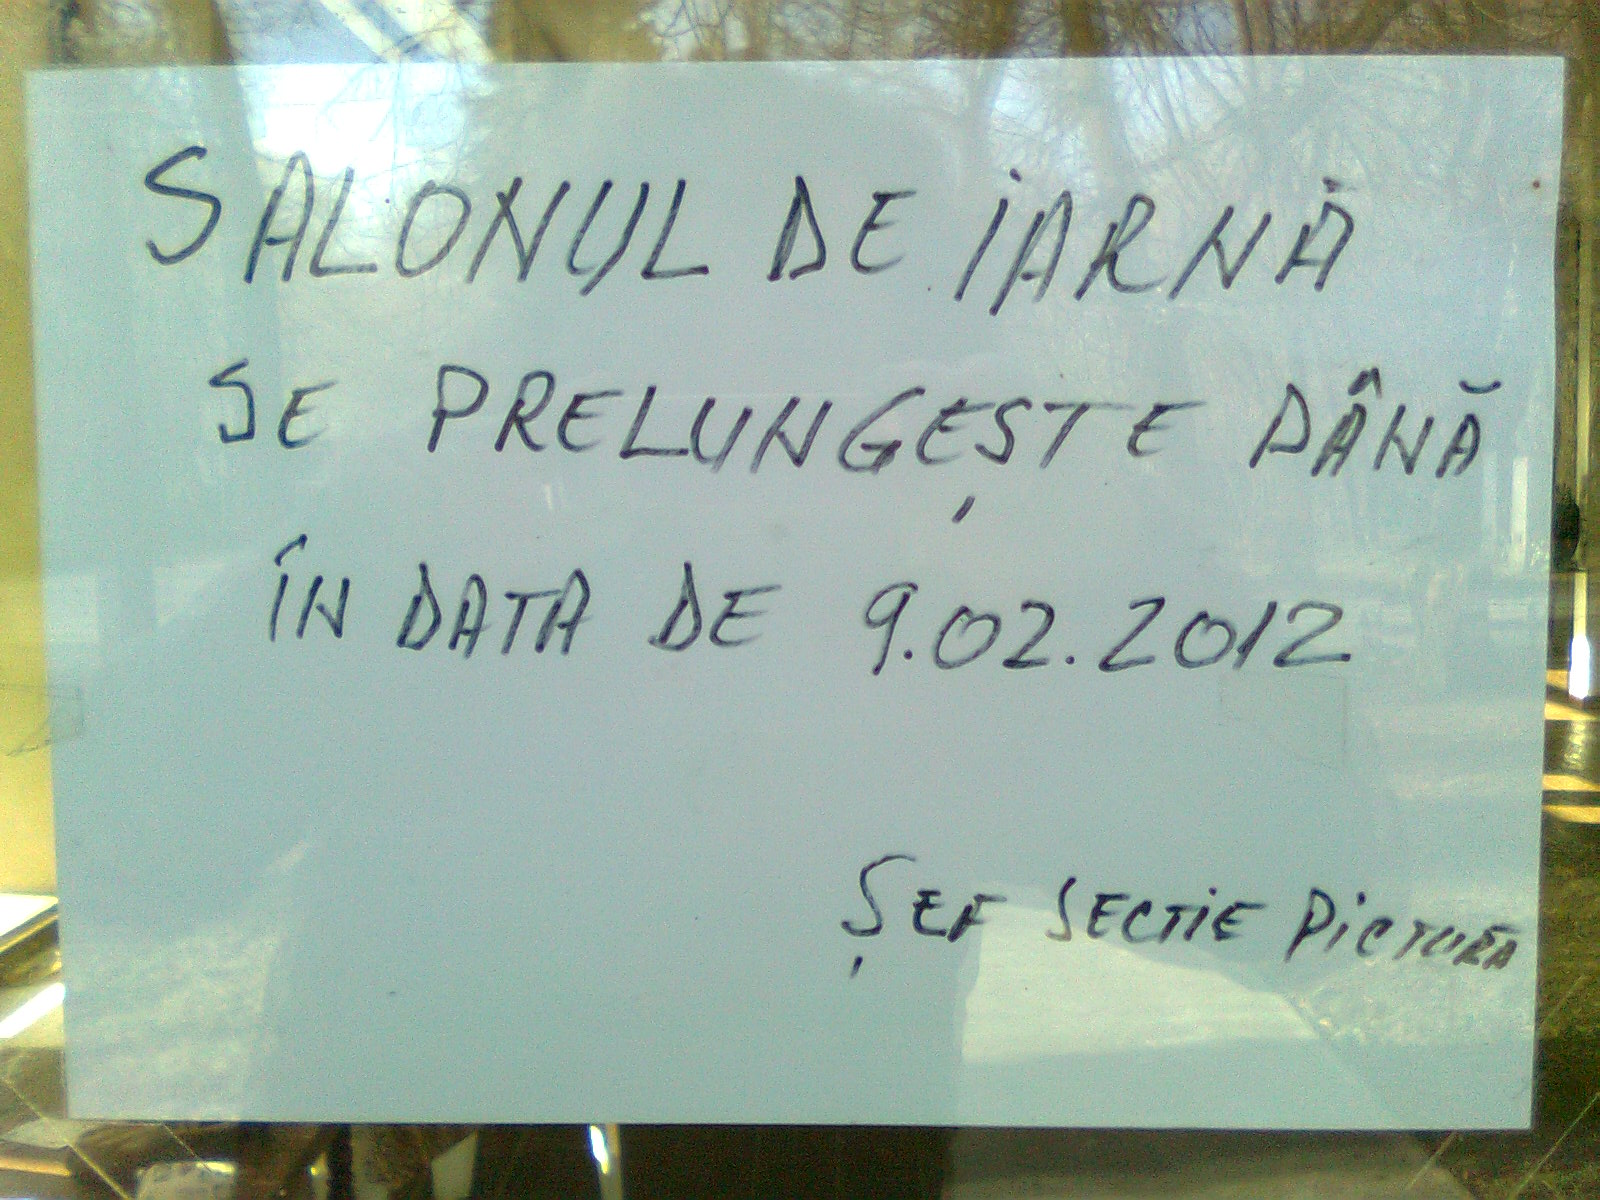 SALONUL DE IARNĂ
SE PRELUNGEȘTE PÂNĂ
ÎN DATA DE 9.02.2012
ȘEF SECTIE PICTURĂ